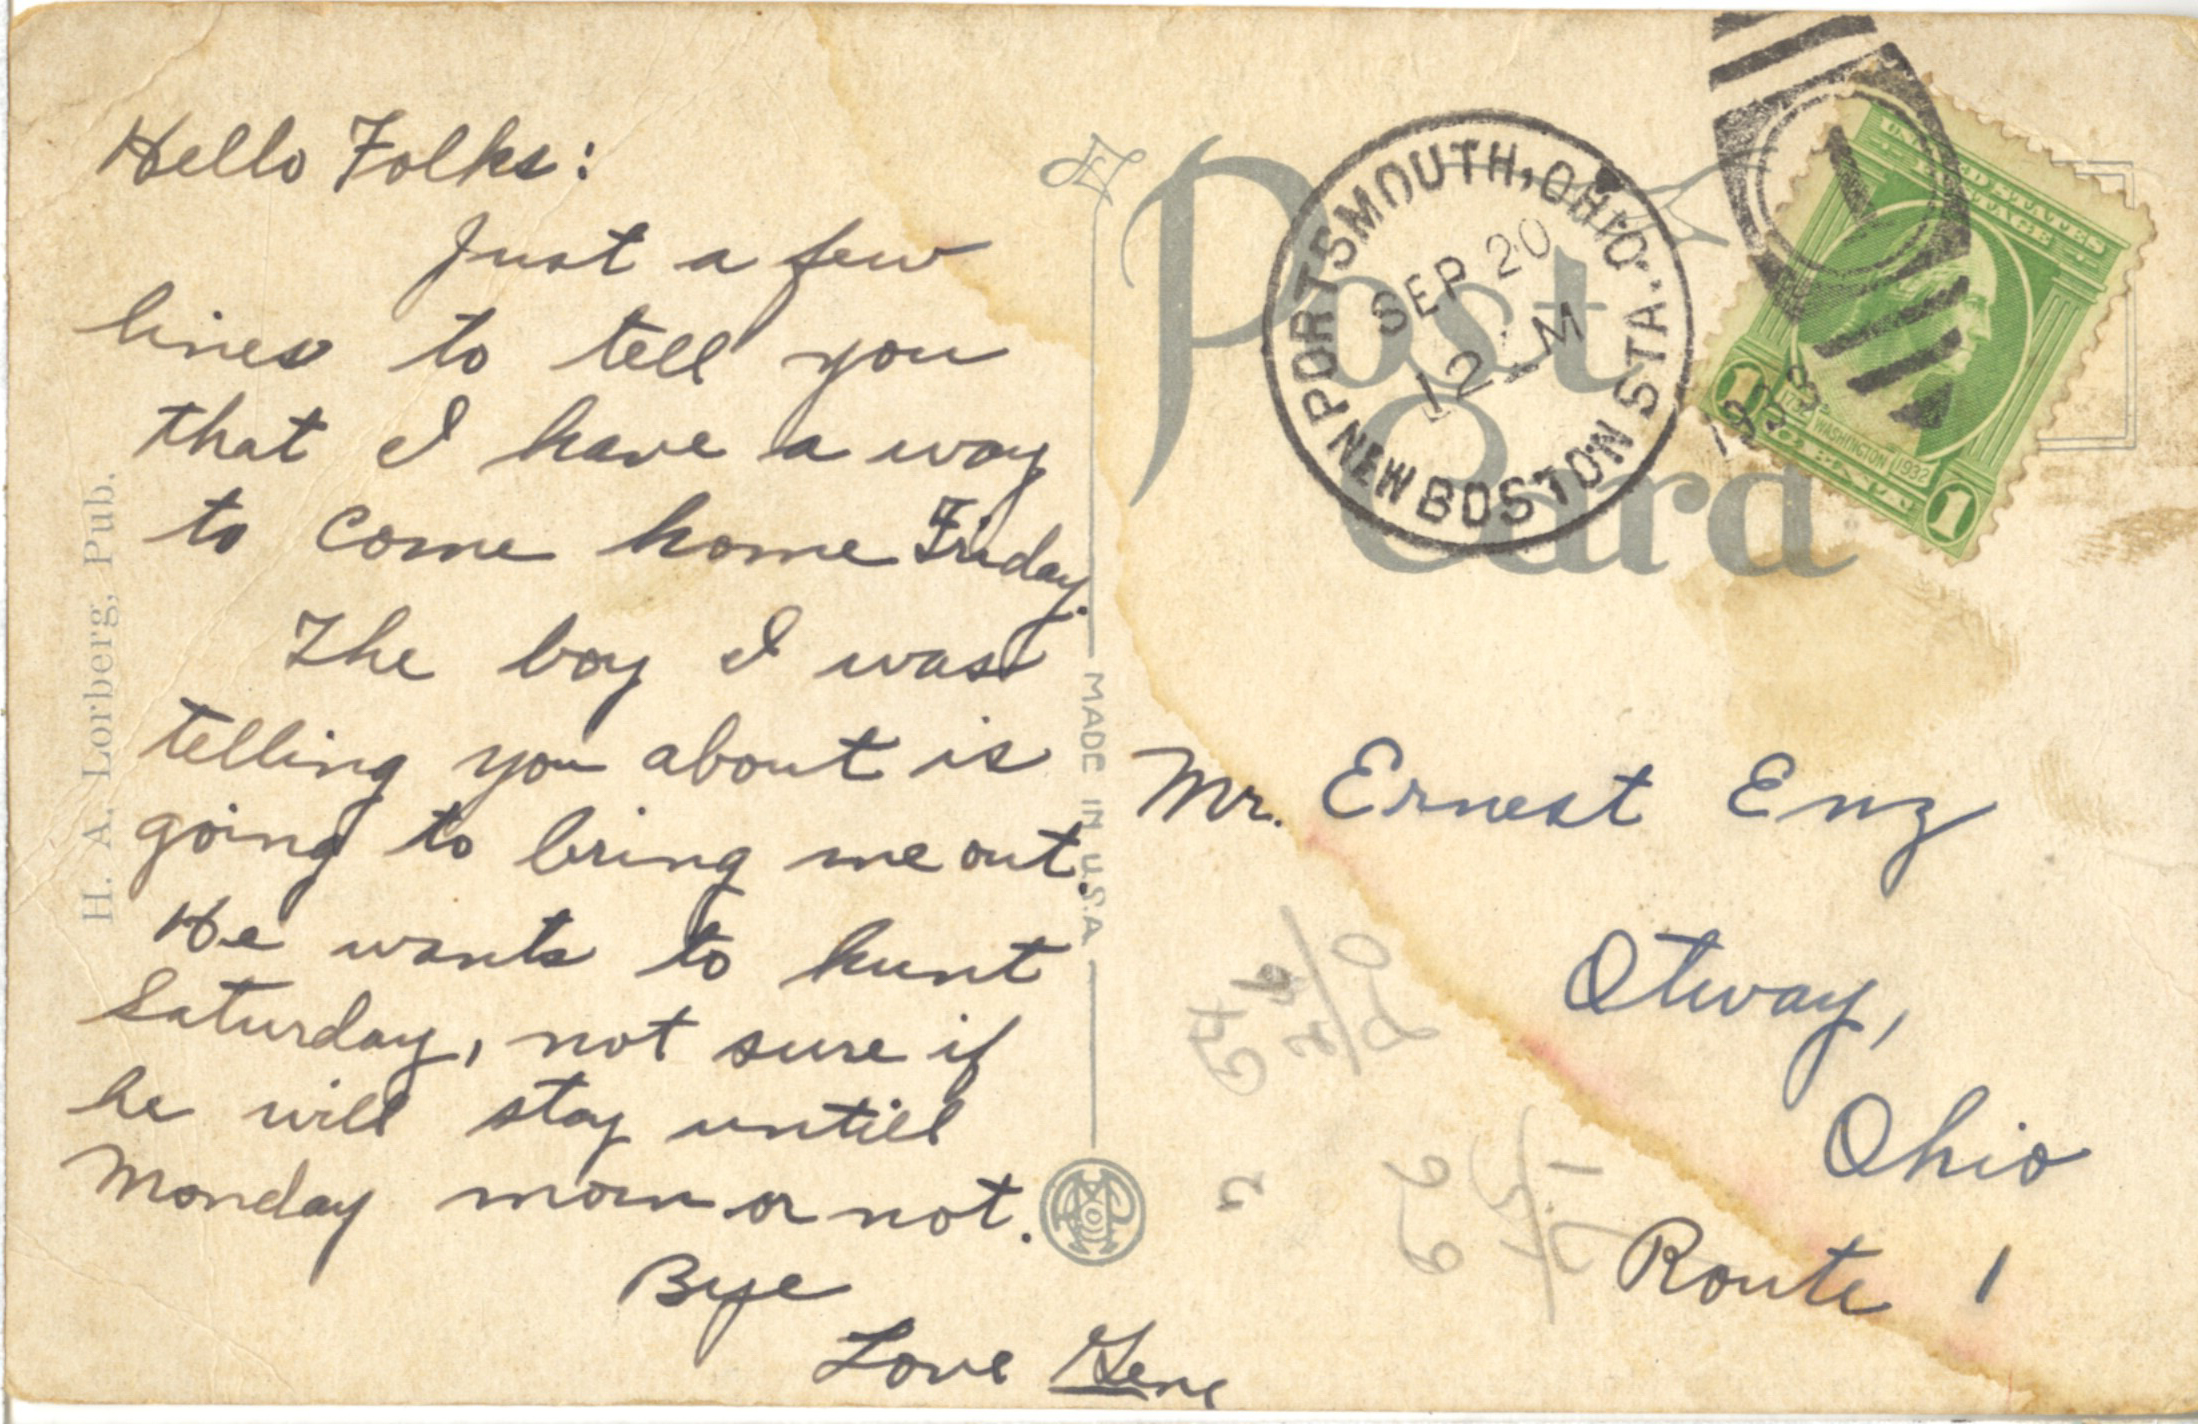 Hello Folks:
Just a few
lines to tell you
that I have a way
to come home Friday.
The boy I was
telling you about is
going to bring me out.
He wants to hunt
Saturday, not sure if
he will stay untill
Monday morn or not.
Bye
Love Gene
H. A. Lorberg, Pub.
MADE IN U.S.A
Post
Card
PORTSMOUTH, OHIO.
SEP 20
12 M
NEW BOSTON STA.
1
UNITED STATES
POSTAGE
WASHINGTON 1932
1 1
Mr. Ernest Enz
Otway,
Ohio
Route 1